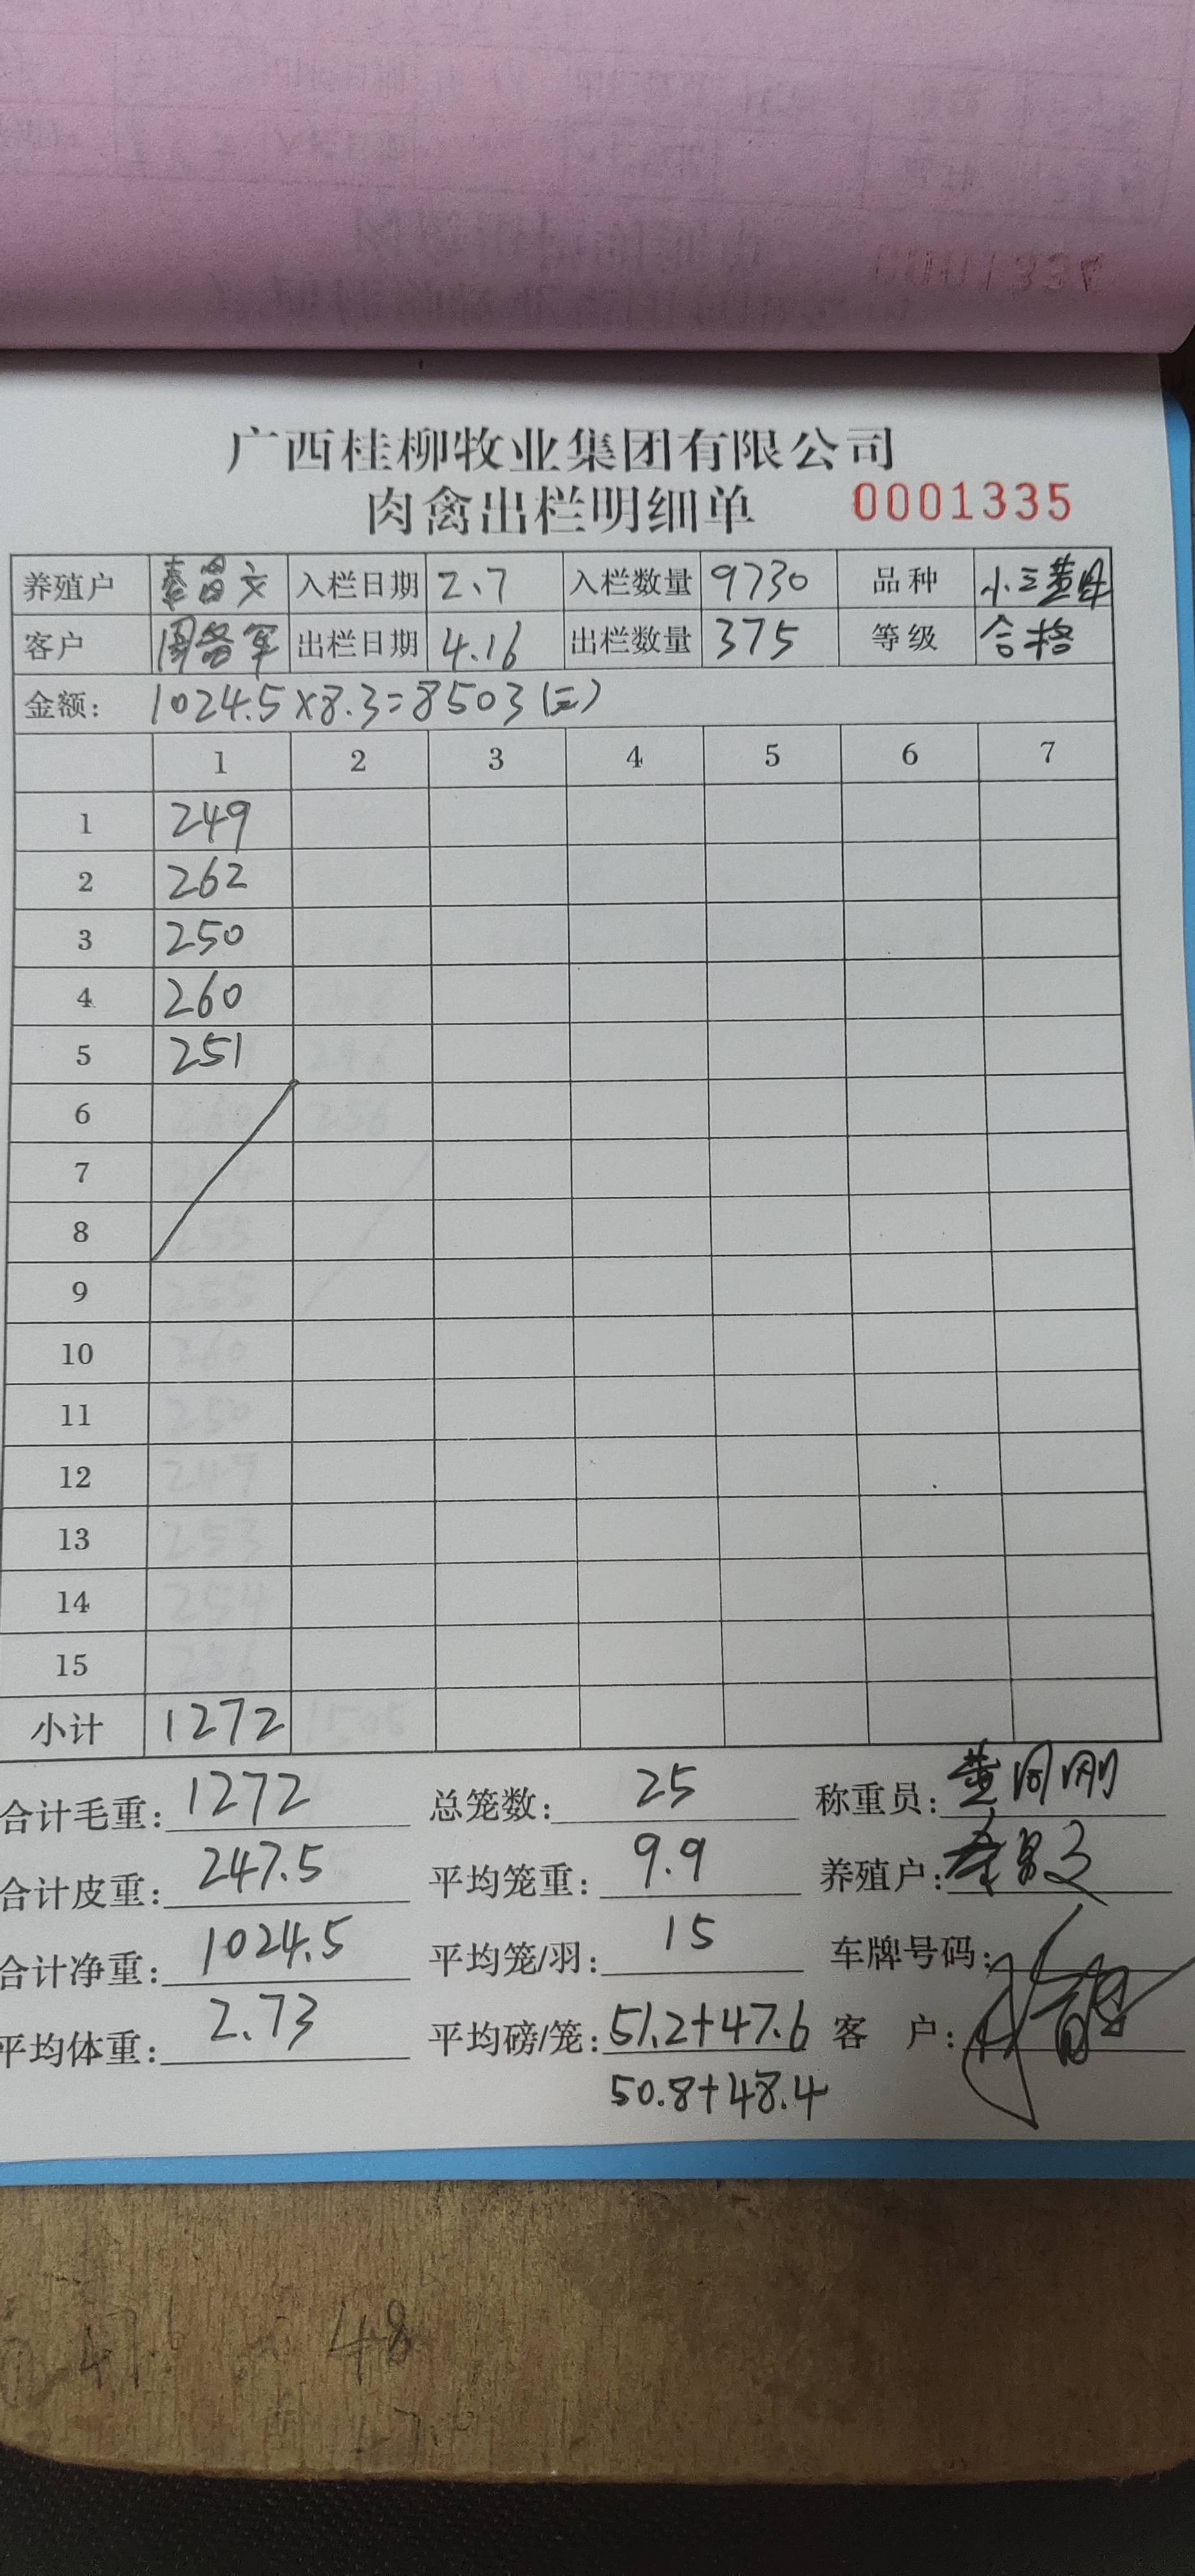 广西桂柳牧业集团有限公司
肉禽出栏明细单 0001335
养殖户 秦昌文 入栏日期 2、7 入栏数量 9730 品种 小三黄母
客户 出栏日期 4.16 出栏数量 375 等级 合格
金额: 1024.5×8.3=8503(三)
1 2 3 4 5 6 7
1 249
2 262
3 250
4 260
5 251
6
7
8
9
10
11
12
13
14
15
小计 1272
合计毛重: 1272 总笼数: 25 称重员: 黄同刚
合计皮重: 247.5 平均笼重: 9.9 养殖户:
合计净重: 1024.5 平均笼/羽: 15 车牌号码:
平均体重: 2.73 平均磅/笼: 51.2+47.6 客 户:
50.8+48.4
47.6 48